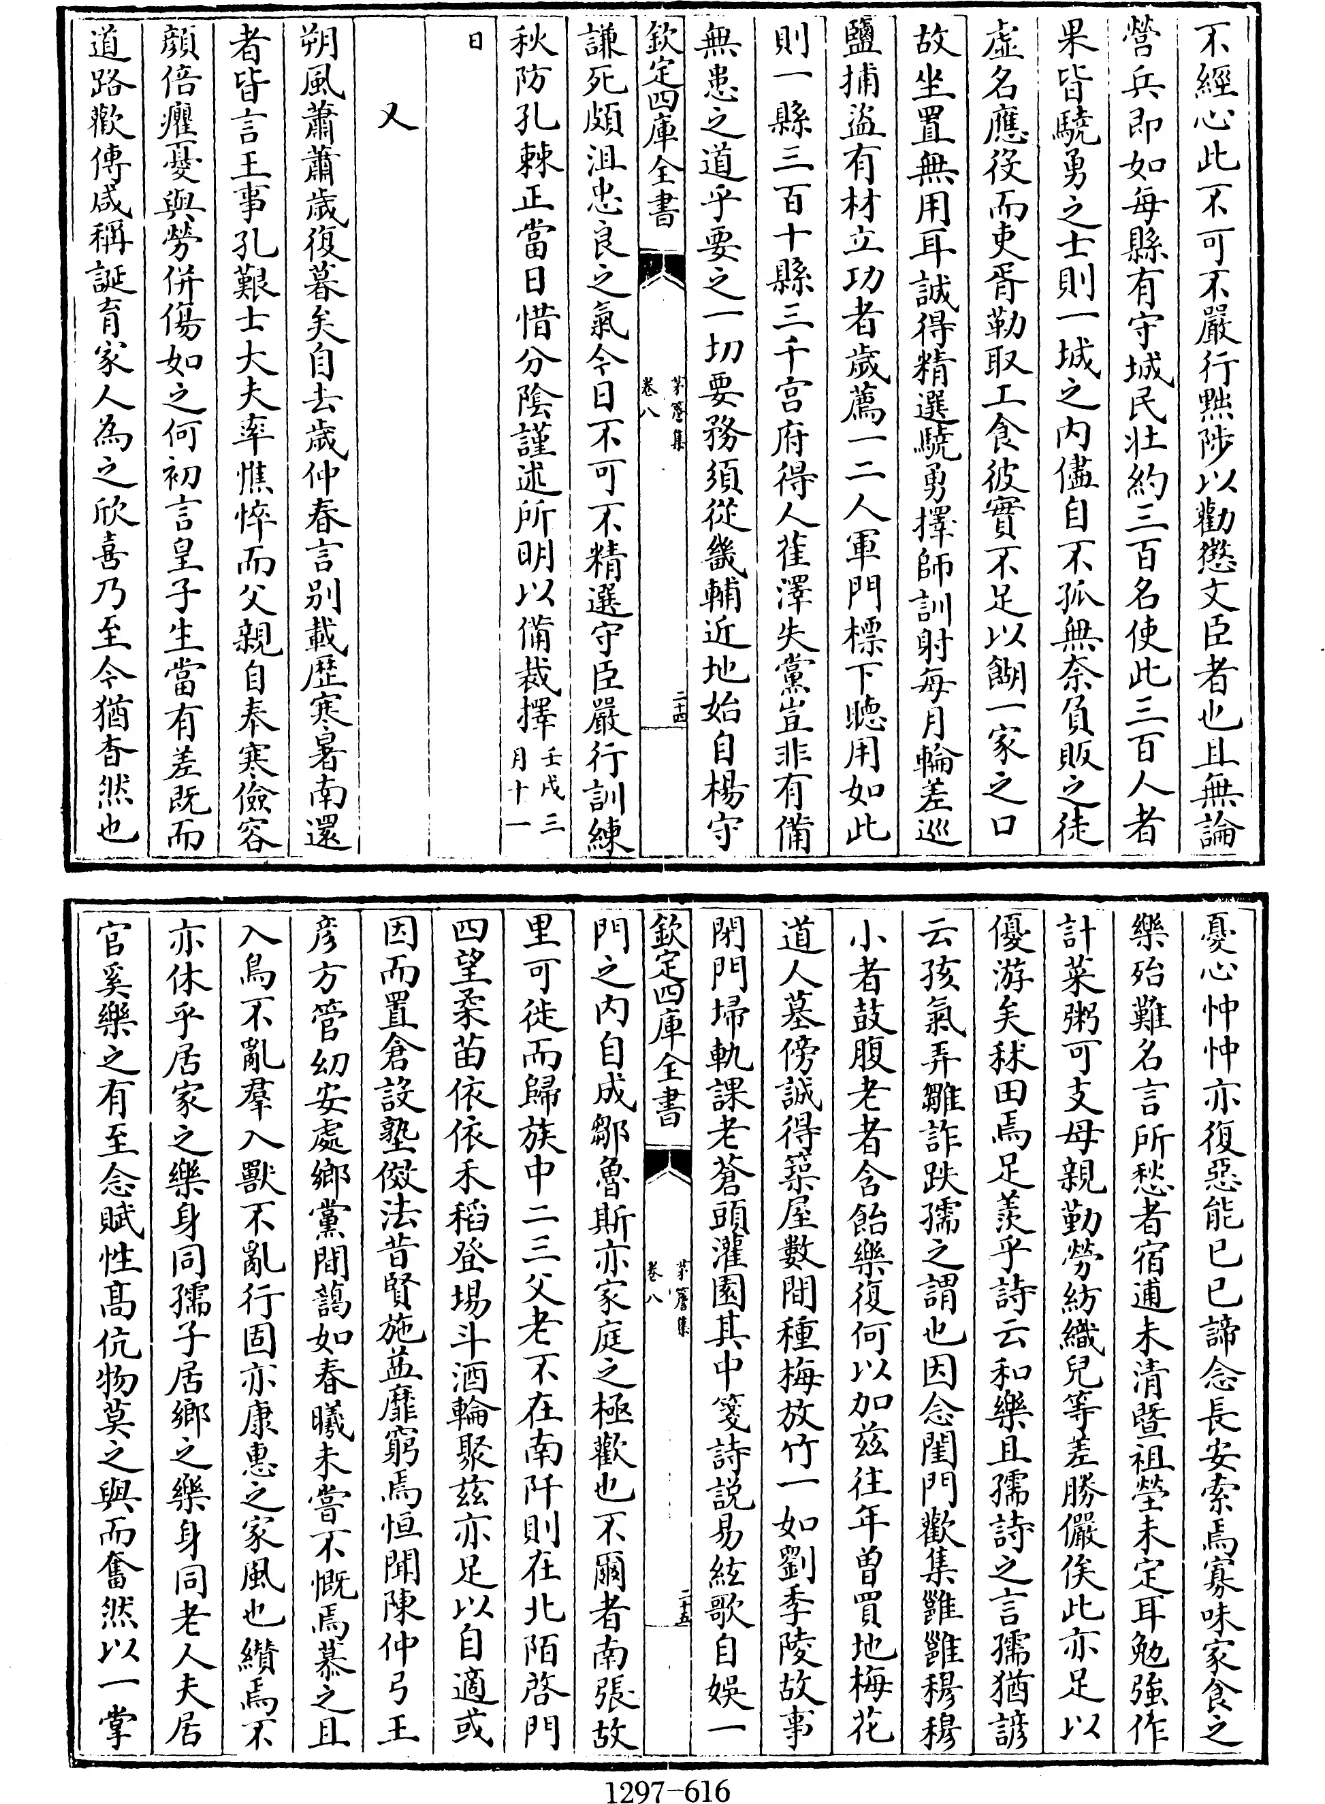 不經心此不可不嚴行黜陟以勸懲文臣者也且無論
營兵即如每縣有守城民壯約三百名使此三百人者
果皆驍勇之士則一城之内儘自不孤無奈負販之徒
虛名應役而吏胥勒取工食彼實不足以餬一家之口
故坐置無用耳誠得精選驍勇擇師訓射每月輪差巡
鹽捕盜有材立功者歲薦一二人軍門標下聴用如此
則一縣三百十縣三千宫府得人萑澤失黨豈非有備
無患之道乎要之一切要務須從畿輔近地始自楊守
欽定四庫全書
茅簷集
卷八
二十四
謙死頗沮忠良之氣今日不可不精選守臣嚴行訓練
秋防孔棘正當日惜分陰謹述所明以備裁擇壬戌三
月十一
日
又
朔風蕭蕭歲復暮矣自去歲仲春言别載歴寒暑南還
者皆言王事孔艱士大夫率憔悴而父親自奉寒儉容
顔倍癯憂與勞併傷如之何初言皇子生當有差既而
道路歡傳咸稱誕育家人為之欣喜乃至今猶杳然也
憂心忡忡亦復惡能已已諦念長安索焉寡味家食之
樂殆難名言所愁者宿逋未清暨祖塋未定耳勉強作
計菜粥可支母親勤勞紡織兒等差勝儼俟此亦足以
優游矣秫田焉足羨乎詩云和樂且孺詩之言孺猶諺
云孩氣弄雛詐跌孺之謂也因念閨門歡集雝雝穆穆
小者鼓腹老者含飴樂復何以加兹往年曾買地梅花
道人墓傍誠得築屋數間種梅放竹一如劉季陵故事
閉門埽軌課老蒼頭灌園其中箋詩説易絃歌自娛一
欽定四庫全書
茅簷集
卷八
二十五
門之内自成鄒魯斯亦家庭之極歡也不爾者南張故
里可徙而歸族中二三父老不在南阡則在北陌啓門
四望柔苗依依禾稻登場斗酒輪聚兹亦足以自適或
因而置倉設塾倣法昔賢施益靡窮焉恒聞陳仲弓王
彦方管幼安處鄉黨間藹如春曦未嘗不慨焉慕之且
入鳥不亂羣入獸不亂行固亦康惠之家風也纘焉不
亦休乎居家之樂身同孺子居鄉之樂身同老人夫居
官奚樂之有至念賦性髙伉物莫之與而奮然以一掌
1297-616